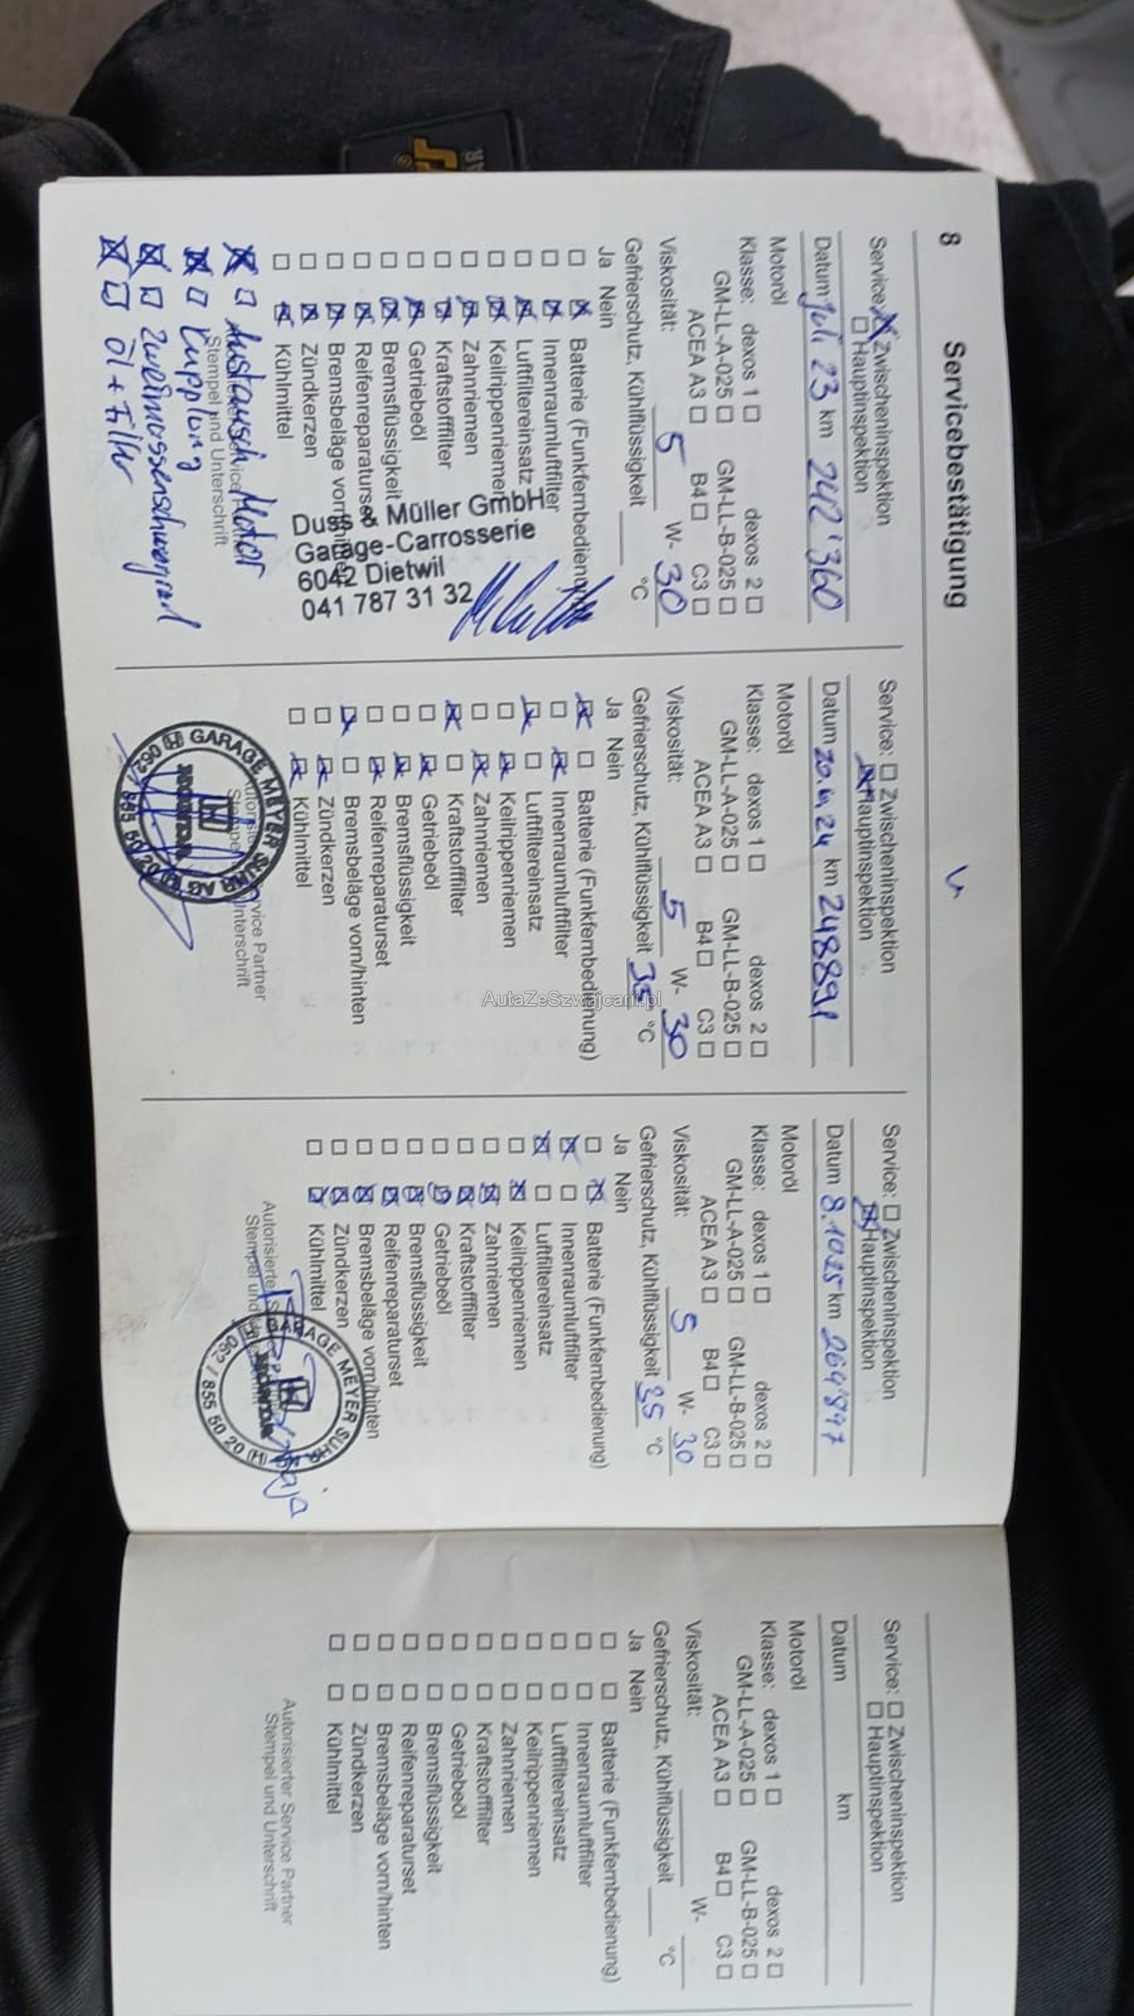 8 Servicebestätigung
Service: Zwischeninspektion
Hauptinspektion
Datum Juli 23 km 242'360
Motoröl
Klasse: dexos 1 dexos 2
GM-LL-A-025 GM-LL-B-025
ACEA A3 B4 C3
Viskosität: 5 W- 30
Gefrierschutz, Kühlflüssigkeit °C
Ja Nein
Batterie (Funkfernbedienung)
Innenraumluftfilter
Luftfiltereinsatz
Keilrippenriemen
Zahnriemen
Kraftstofffilter
Getriebeöl
Bremsflüssigkeit
Reifenreparaturset
Bremsbeläge vorn/hinten
Zündkerzen
Kühlmittel
Duss & Müller GmbH
Garage-Carrosserie
6042 Dietwil
041 787 31 32
Austausch Motor
Stempel und Unterschrift
Kupplung
Zweimassenschwungrad
Öl + Filter
Service: Zwischeninspektion
Hauptinspektion
Datum km 248891
Motoröl
Klasse: dexos 1 dexos 2
GM-LL-A-025 GM-LL-B-025
ACEA A3 B4 C3
Viskosität: 5 W- 30
Gefrierschutz, Kühlflüssigkeit 35 °C
Ja Nein
Batterie (Funkfernbedienung)
Innenraumluftfilter
Luftfiltereinsatz
Keilrippenriemen
Zahnriemen
Kraftstofffilter
Getriebeöl
Bremsflüssigkeit
Reifenreparaturset
Bremsbeläge vorn/hinten
Zündkerzen
Kühlmittel
GARAGE MEYER SUHR AG
062 / 855 50 20
HONDA
Service: Zwischeninspektion
Hauptinspektion
Datum 8.10.25 km 264'897
Motoröl
Klasse: dexos 1 dexos 2
GM-LL-A-025 GM-LL-B-025
ACEA A3 B4 C3
Viskosität: 5 W- 30
Gefrierschutz, Kühlflüssigkeit 35 °C
Ja Nein
Batterie (Funkfernbedienung)
Innenraumluftfilter
Luftfiltereinsatz
Keilrippenriemen
Zahnriemen
Kraftstofffilter
Getriebeöl
Bremsflüssigkeit
Reifenreparaturset
Bremsbeläge vorn/hinten
Zündkerzen
Kühlmittel
GARAGE MEYER SUHR
062 / 855 50 20
HONDA
Service: Zwischeninspektion
Hauptinspektion
Datum km
Motoröl
Klasse: dexos 1 dexos 2
GM-LL-A-025 GM-LL-B-025
ACEA A3 B4 C3
Viskosität: W-
Gefrierschutz, Kühlflüssigkeit °C
Ja Nein
Batterie (Funkfernbedienung)
Innenraumluftfilter
Luftfiltereinsatz
Keilrippenriemen
Zahnriemen
Kraftstofffilter
Getriebeöl
Bremsflüssigkeit
Reifenreparaturset
Bremsbeläge vorn/hinten
Zündkerzen
Kühlmittel
Autorisierter Service Partner
Stempel und Unterschrift
AutaZeSzwajcarii.pl